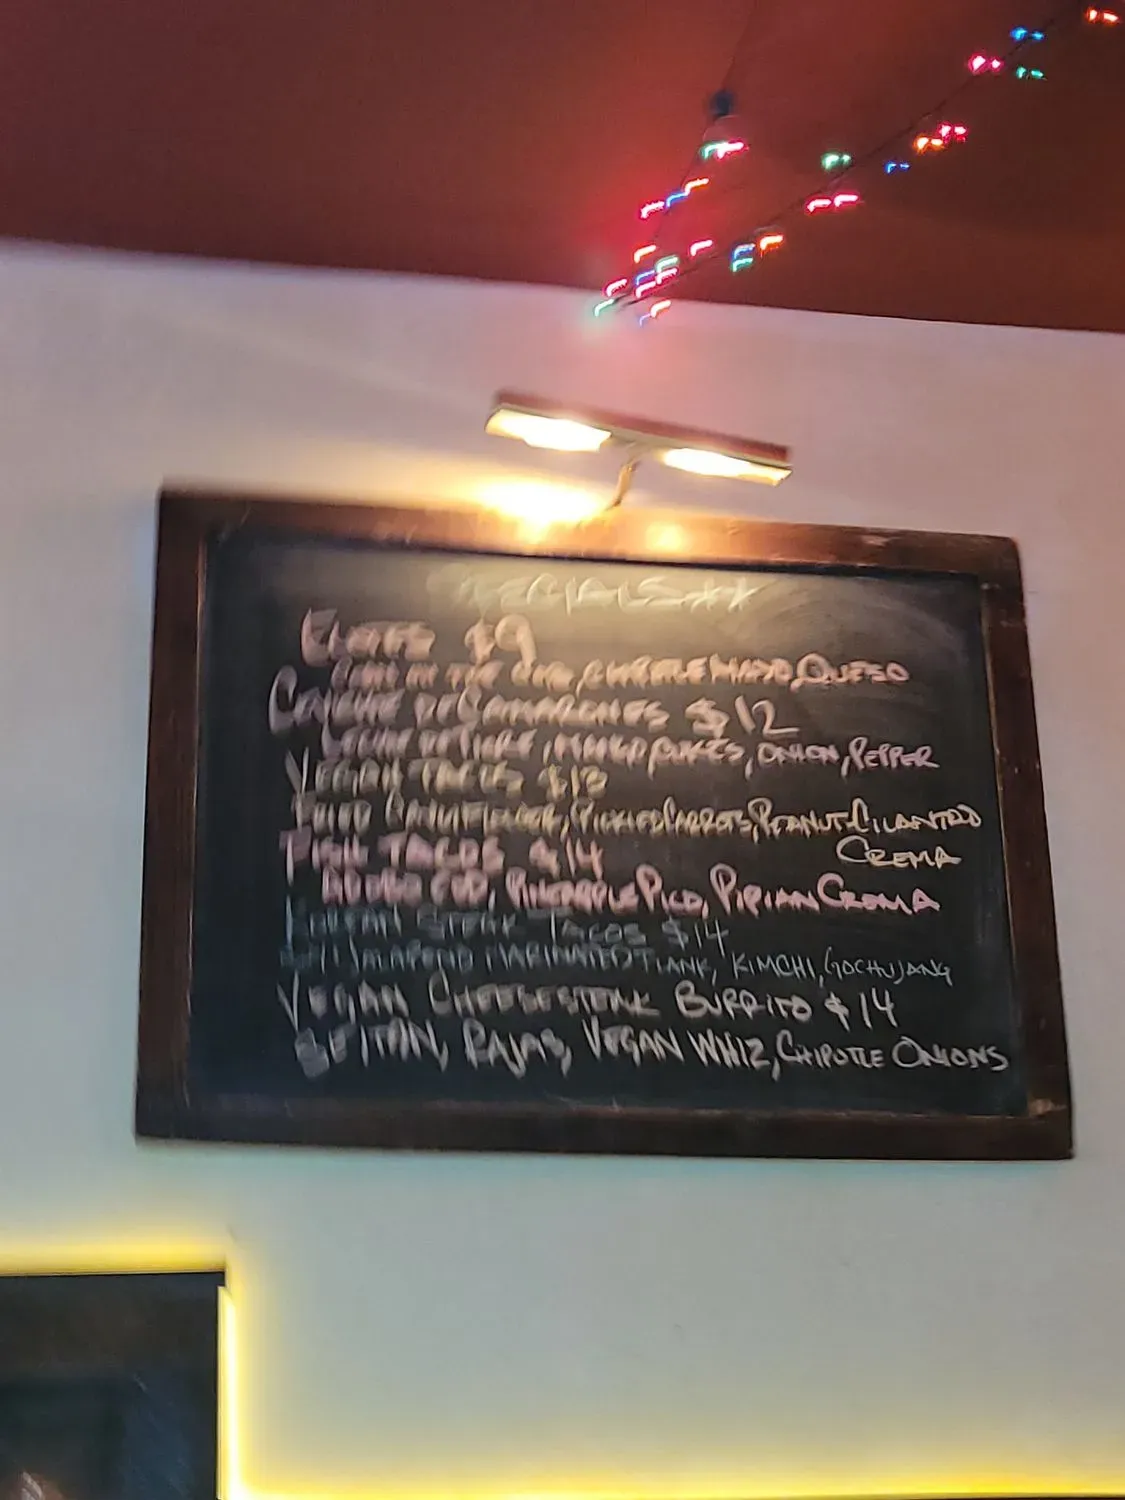 SPECIALS**
ELOTES $9
CORN ON THE COB, CHIPOTLE MAYO, QUESO
CEVICHE DE CAMARONES $12
LECHE DE TIGRE, MANGO, CUKES, ONION, PEPPER
VEGAN TACOS $13
FRIED CAULIFLOWER, PICKLED CARROTS, PEANUT-CILANTRO
CREMA
FISH TACOS $14
ADOBO COD, PINEAPPLE PICO, PIPIAN CREMA
KOREAN STEAK TACOS $14
JALAPENO MARINATED FLANK, KIMCHI, GOCHUJANG
VEGAN CHEESESTEAK BURRITO $14
SEITAN, RAJAS, VEGAN WHIZ, CHIPOTLE ONIONS